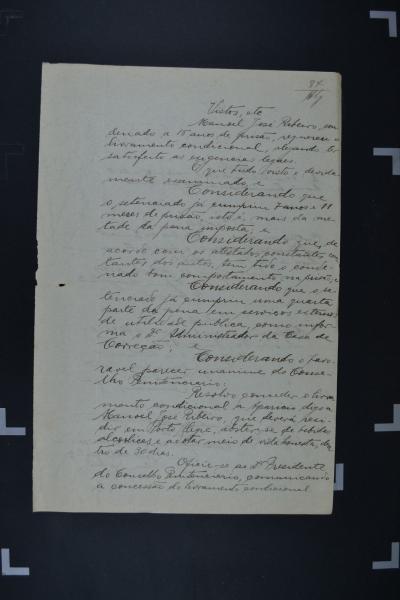 84
Vistos, etc
Manoel José Ribeiro, con
denado a 15 anos de prisão, requereu o
livramento condicional, alegando ter
satisfeito as exigencias legaes.
O que tudo visto e devida
mente examinado, e
Considerando que
o setenciado já cumpriu 7 anos e 11
meses de prisão, isto é, mais da me
tade da pena imposta, e
Considerando que, de
acordo com os atestados constantes,
tantes dos autos, tem tido o conde
nado bom comportamento na prisão, e
Considerando que o se
tenciado já cumpriu uma quarta
parte da pena em serviços externos
de utilidade publica, como infor
ma o Dr. Administrador da Casa de
Correção; e
Considerando o favo
ravel parecer unanime do Conse
lho Penitenciario:
Resolvo conceder o livra
mento condicional a digo a
Manoel José Ribeiro, que deverá resi
dir em Porto Alegre, abster-se de bebidas
alcoolicas e adotar meio de vida honesto, den
tro de 30 dias.
Oficie-se ao Dr. Presidente
do Conselho Penitenciario, comunicando
a concessão do livramento condicional